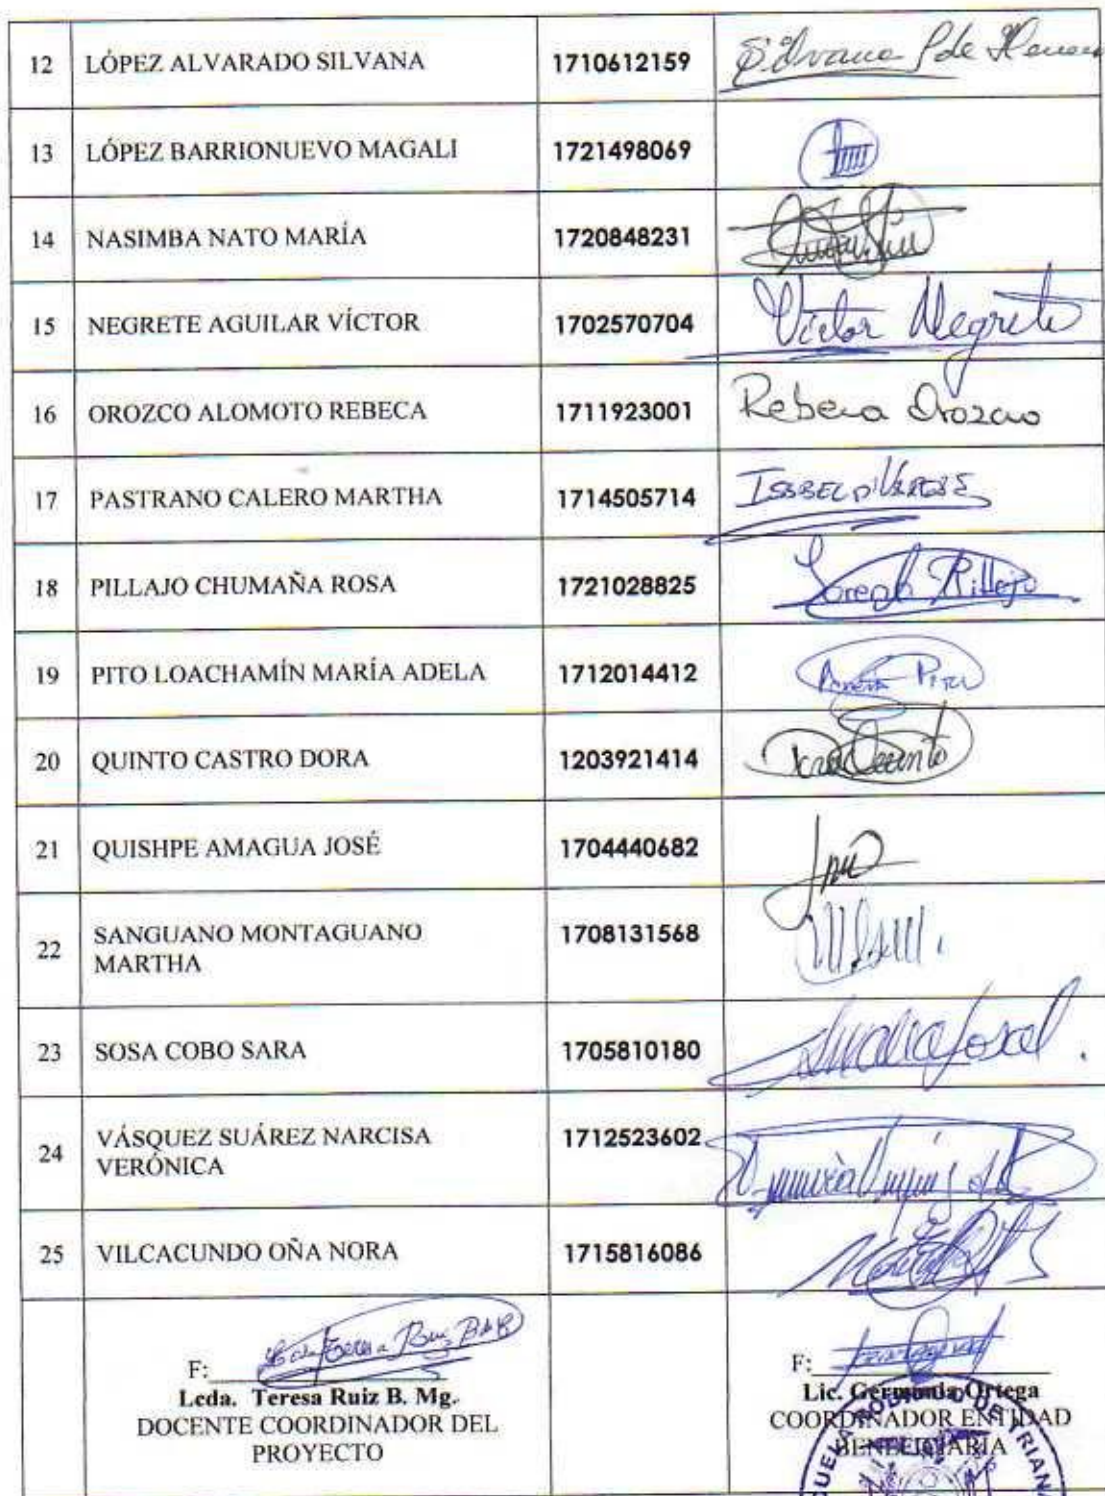 12 LÓPEZ ALVARADO SILVANA 1710612159 Silvana
13 LÓPEZ BARRIONUEVO MAGALI 1721498069
14 NASIMBA NATO MARÍA 1720848231
15 NEGRETE AGUILAR VÍCTOR 1702570704 Victor Negrete
16 OROZCO ALOMOTO REBECA 1711923001 Rebeca Orozco
17 PASTRANO CALERO MARTHA 1714505714
18 PILLAJO CHUMAÑA ROSA 1721028825 Pillajo
19 PITO LOACHAMÍN MARÍA ADELA 1712014412
20 QUINTO CASTRO DORA 1203921414 Dora Quinto
21 QUISHPE AMAGUA JOSÉ 1704440682
22 SANGUANO MONTAGUANO
MARTHA 1708131568
23 SOSA COBO SARA 1705810180
24 VÁSQUEZ SUÁREZ NARCISA
VERÓNICA 1712523602
25 VILCACUNDO OÑA NORA 1715816086
F:
Lcda. Teresa Ruiz B. Mg.
DOCENTE COORDINADOR DEL
PROYECTO
F:
Lic. Germania Ortega
COORDINADOR ENTIDAD
BENEFICIARIA